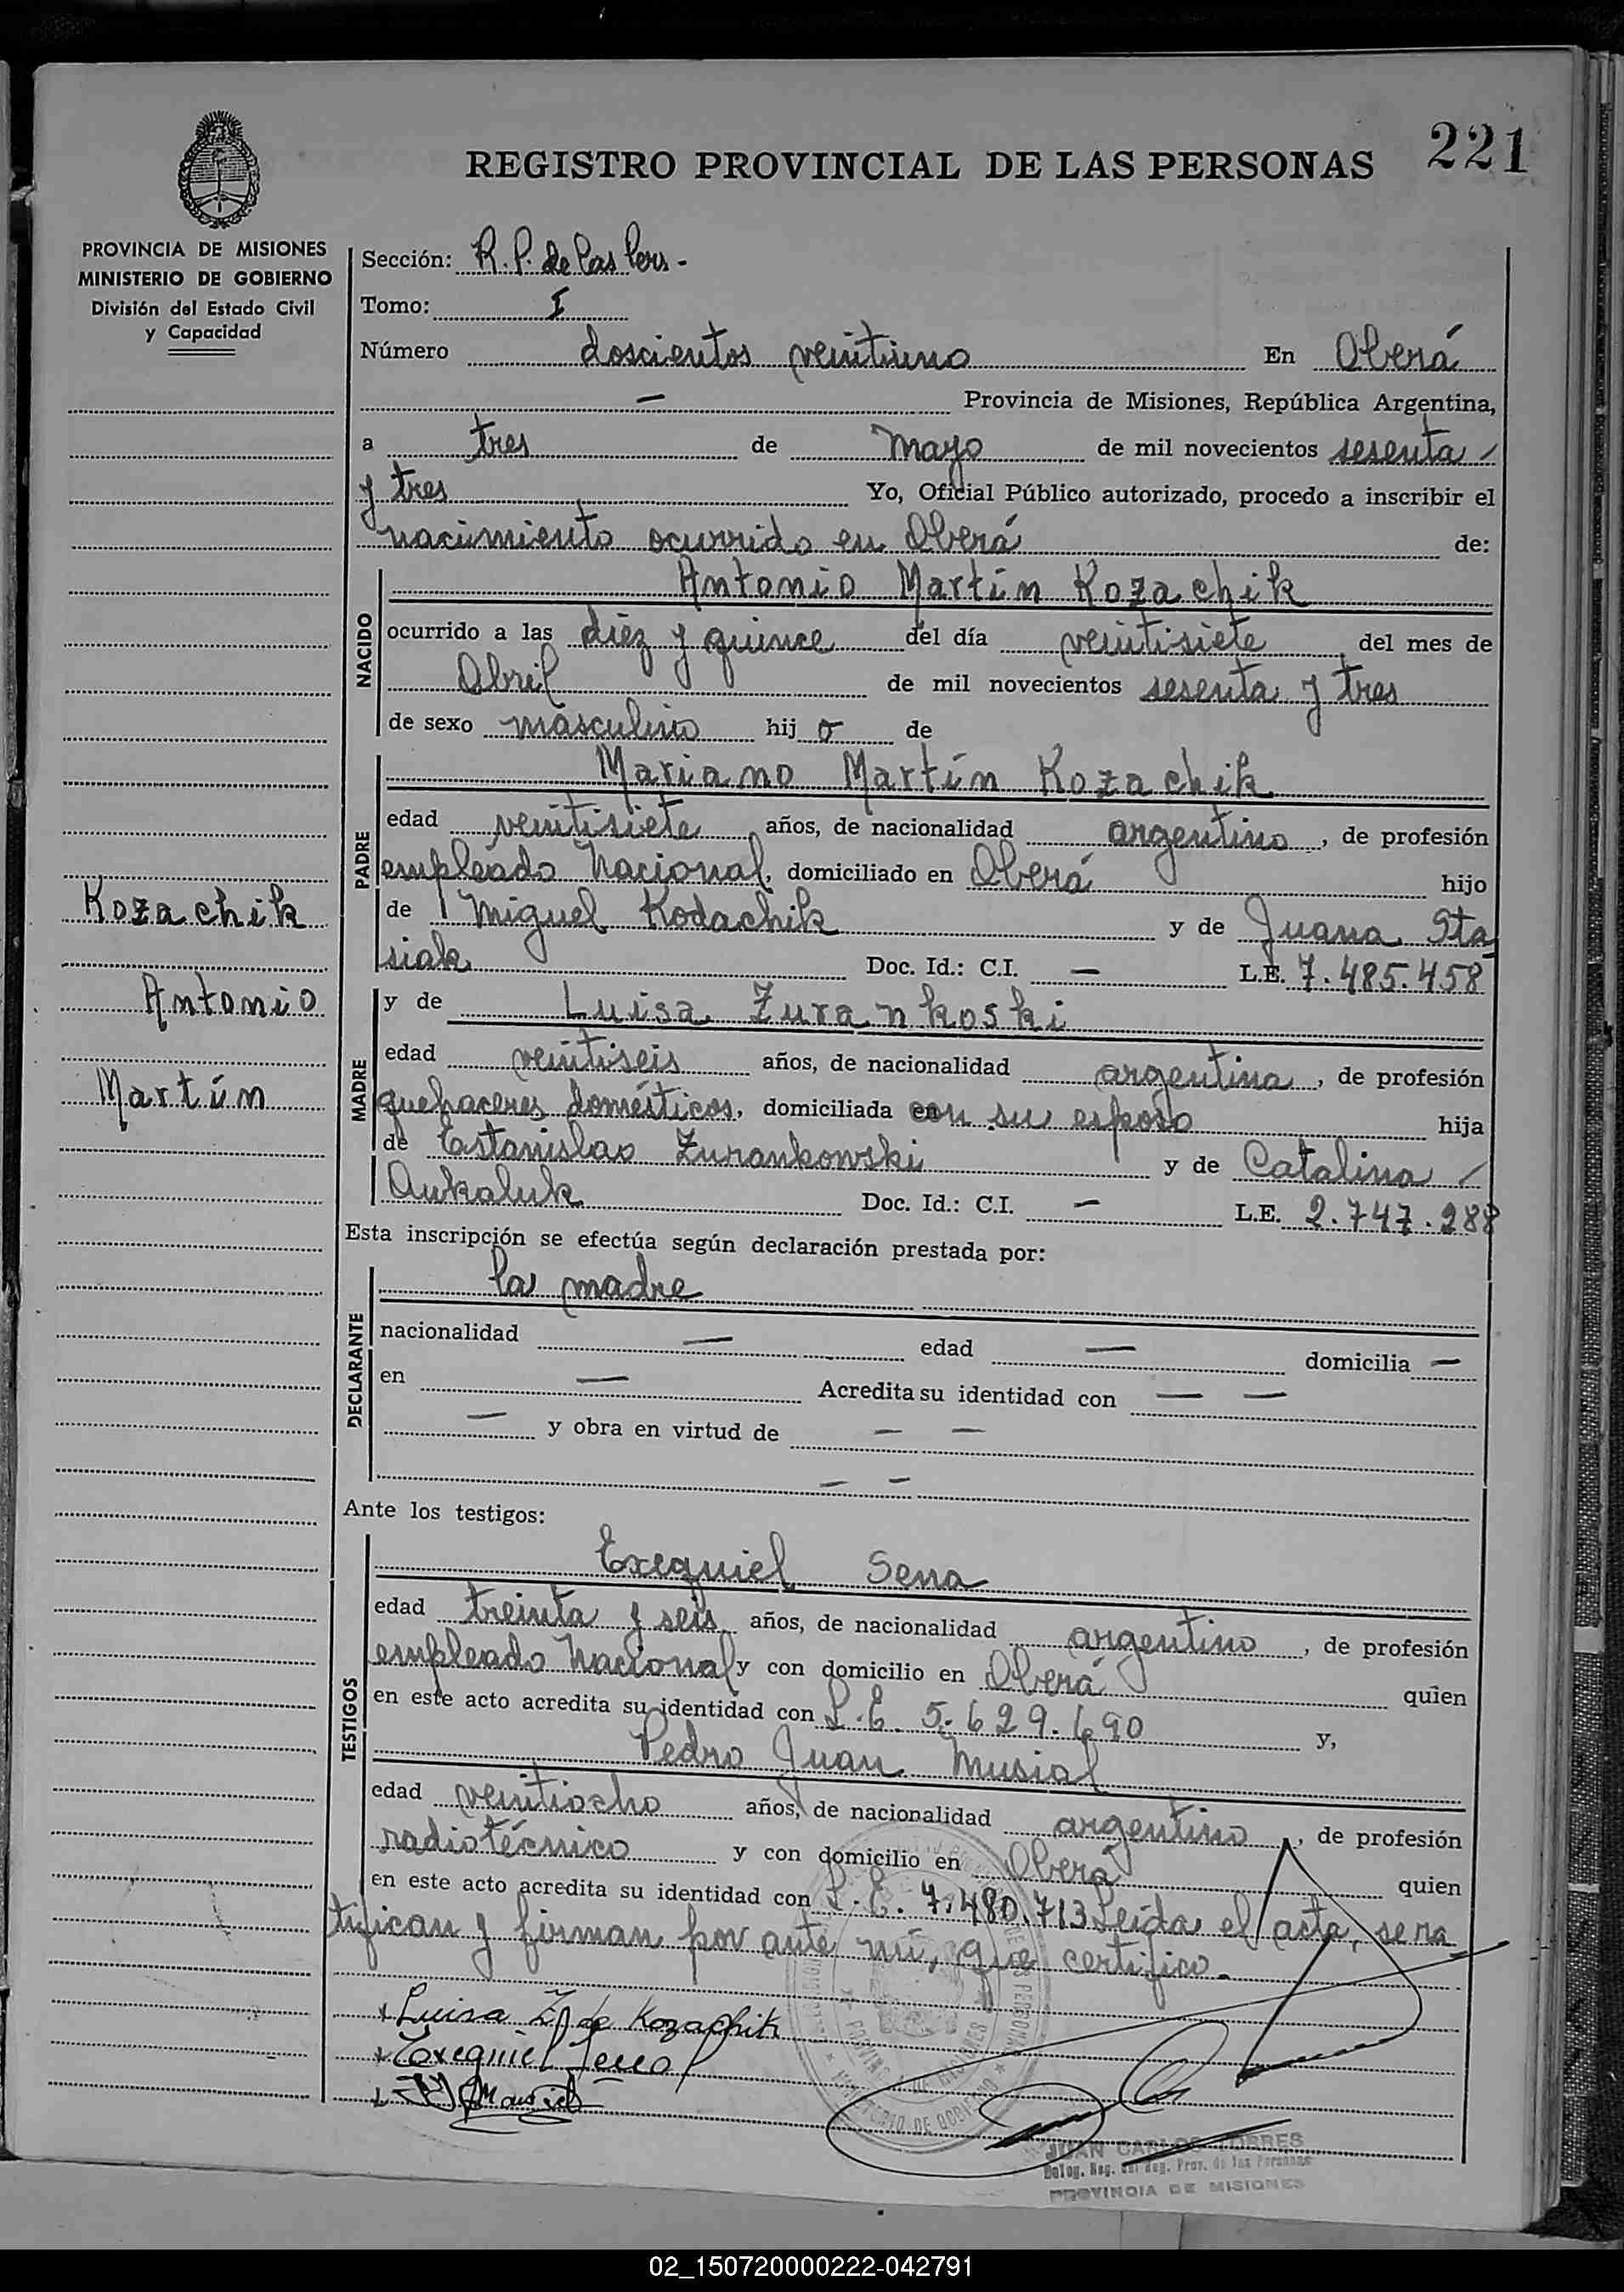 221
REGISTRO PROVINCIAL DE LAS PERSONAS
PROVINCIA DE MISIONES
MINISTERIO DE GOBIERNO
División del Estado Civil
y Capacidad
Sección: R. P. de las Pers -
Tomo: I
Número doscientos veintiuno En Oberá
— Provincia de Misiones, República Argentina,
a tres de Mayo de mil novecientos sesenta /
y tres Yo, Oficial Público autorizado, procedo a inscribir el
nacimiento ocurrido en Oberá de:
NACIDO
Antonio Martín Kozachik
ocurrido a las diez y quince del día veintisiete del mes de
Abril de mil novecientos sesenta y tres
de sexo masculino hij o de
PADRE
Mariano Martín Kozachik
edad veintisiete años, de nacionalidad argentino, de profesión
empleado Nacional, domiciliado en Oberá hijo
de Miguel Kodachik y de Juana Sta
siak Doc. Id.: C.I. — L.E. 7.485.458
Kozachik
Antonio
Martín
MADRE
y de Luisa Zurankoski
edad veintiseis años, de nacionalidad argentina, de profesión
quehaceres domésticos, domiciliada en con su esposo hija
de Estanislao Zurankowski y de Catalina /
Aukaluk Doc. Id.: C.I. — L.E. 2.747.288
Esta inscripción se efectúa según declaración prestada por:
DECLARANTE
la madre
nacionalidad — edad — domicilia —
en — Acredita su identidad con — —
— y obra en virtud de — —
— —
Ante los testigos:
TESTIGOS
Exequiel Sena
edad treinta y seis años, de nacionalidad argentino, de profesión
empleado Nacional y con domicilio en Oberá quien
en este acto acredita su identidad con L.E. 5.629.690 y,
Pedro Juan Musial
edad veintiocho años, de nacionalidad argentino, de profesión
radiotécnico y con domicilio en Oberá quien
en este acto acredita su identidad con L.E. 7.480.713 Leída el acta, se ra
tifican y firman por ante mí, que certifico.
Luisa Z. de Kozachik
Exequiel Sena
Musial
JUAN CARLOS TORRES
Deleg. Reg. del Reg. Prov. de las Personas
PROVINCIA DE MISIONES
02_150720000222-042791